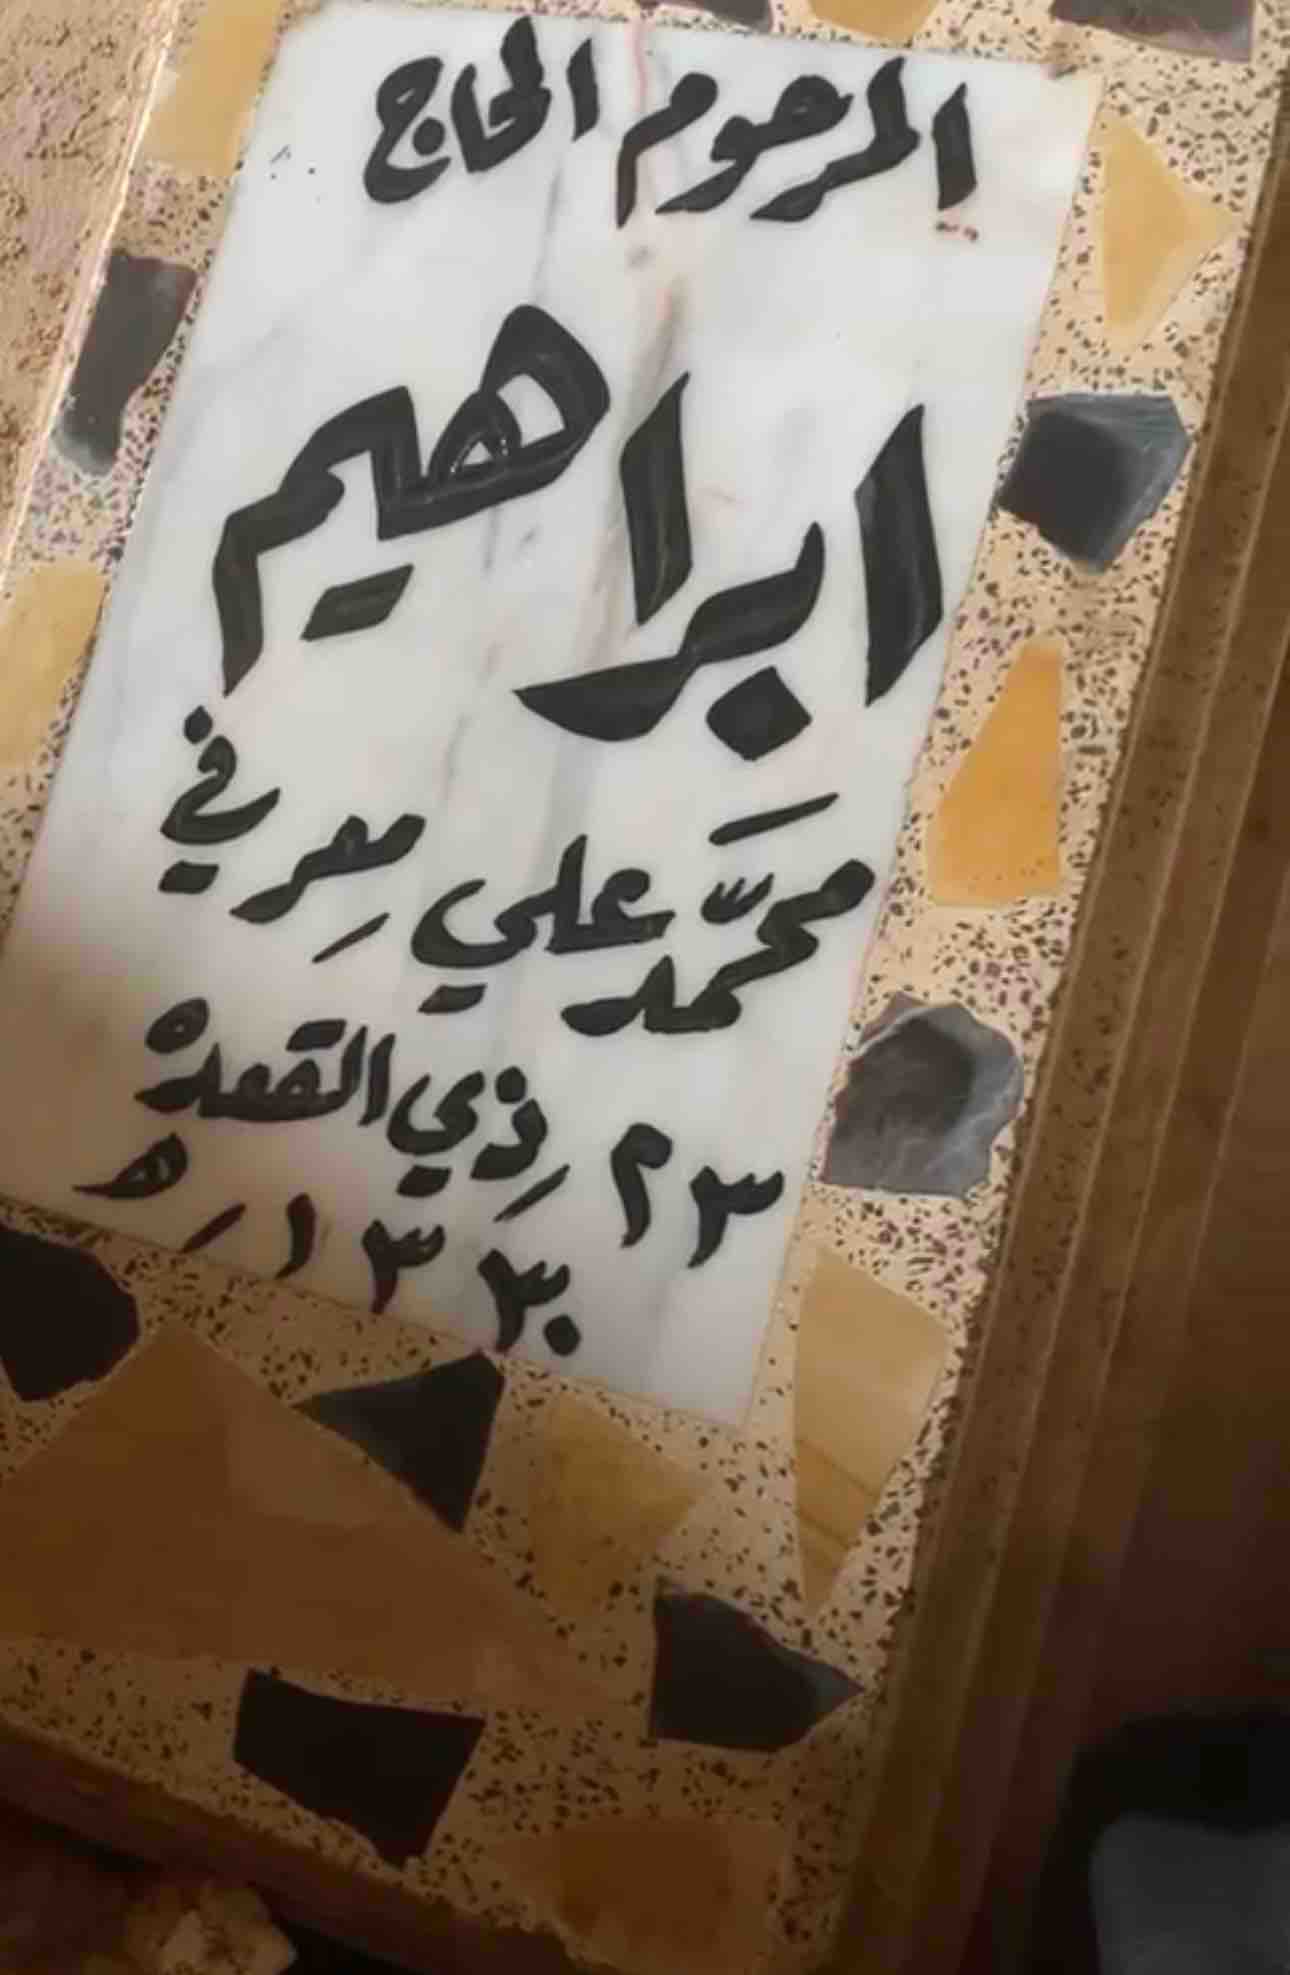 المرحوم الحاج
ابراهيم
محمّد علي معرفي
٢٣ ذي القعدة
١٣٣٠ هـ